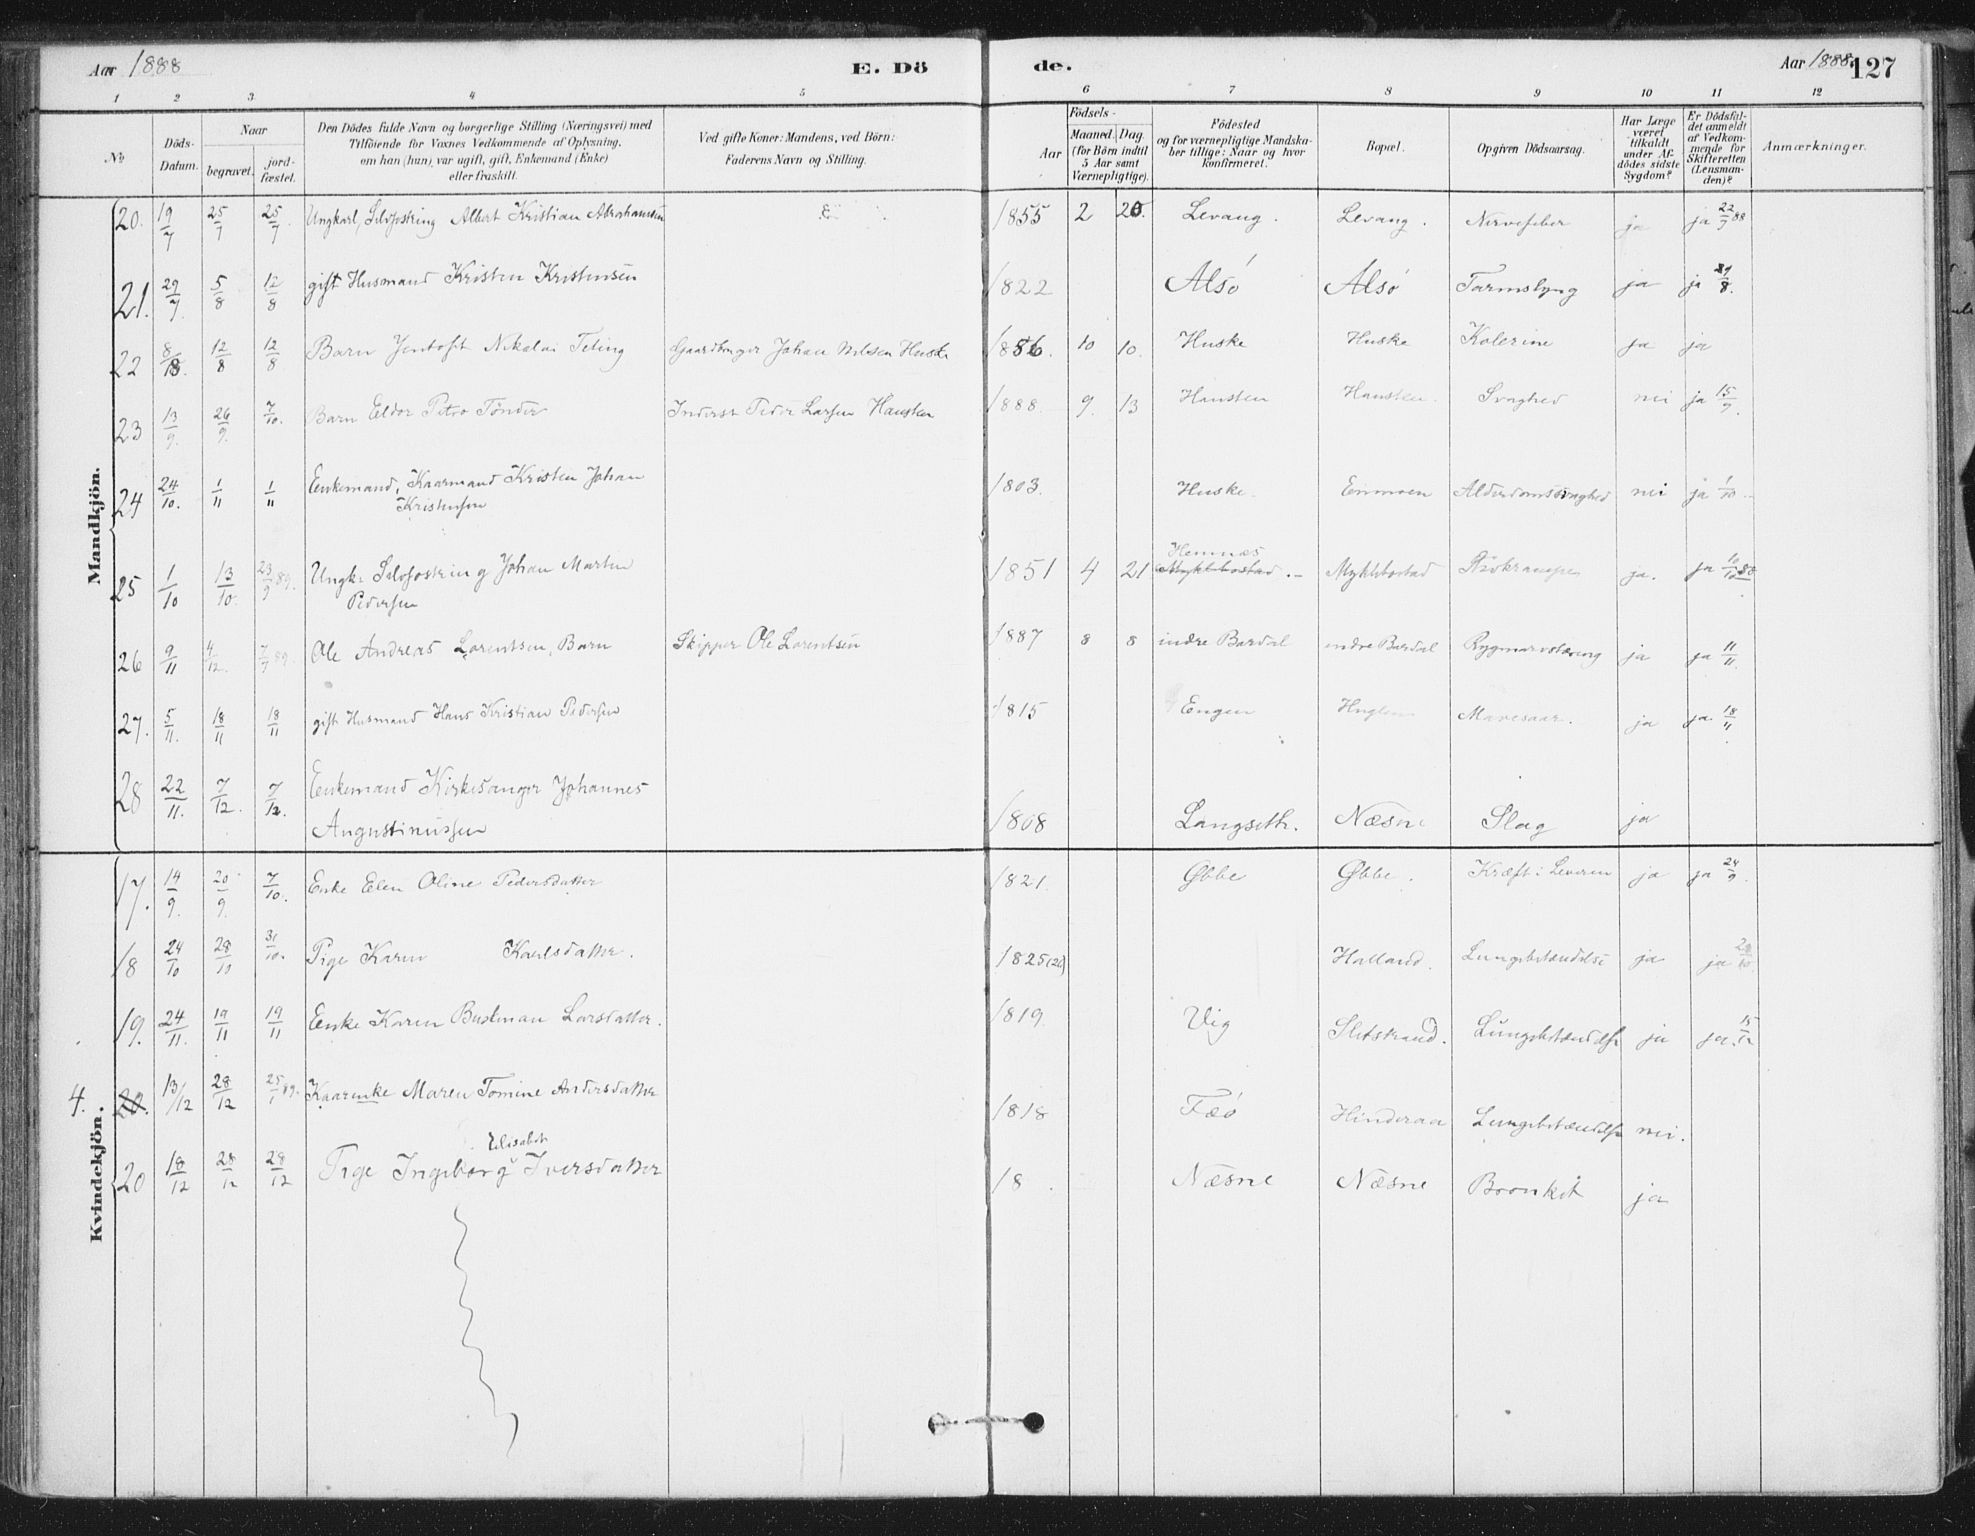 Aar 1888 E. Dö de. Aar 1888. 127
1 2 3 4 5 6 7 8 9 10 11 12
№ Döds-Datum. Naar begravet. jordfæstet. Den Dödes fulde Navn og borgerlige Stilling (Næringsvei) med
Tilföiende för Voxnes Vedkommende af Oplysning,
om han (hun) var ugift, gift, Enkemand (Enke)
eller fraskilt.
Ved gifte Koner: Mandens, ved Börn:
Faderens Navn og Stilling.
Födsels- Aar Maaned. Dag.
(for Börn indtil
5 Aar samt
Værnepligtige).
Födested
og for værnepligtige Mandska-
ber tillige: Naar og hvor
konfirmeret.
Bopæl.
Opgiven Dödsaarsag.
Har Læge
været
tilkaldt
under Af-
dödes sidste
Sygdom?
Er Dödsfal-
det anmeldt
af Vedkom-
mende for
Skifteretten
(Lensman-
den)?
Anmærkninger.
Mandkjön.
20. 19/7 25/7 25/7. Ungkarl, Selvfostring Albert Kristian Abrahamsen 1855 2 20. Levang. Levang. Nervefeber ja ja 22/7 88
21. 29/7. 5/8 12/8 gift Husmand Kristen Kristensen 1822 Alsö Alsö Tarmslyng ja ja 8.
22 12/8 12/8 Barn Jentoft Nikolai Teting Gaardbruger Johan Nilsen Huske 1886. 10 10. Huske Huske Kolerine ja ja
23 13/9. 26/9. 7/10. Barn Eldor Petro Tönder Inderst Peder Larsen Hausten 1888 9. 13 Hausten Hausten. Svaghed nei ja 15/9.
24 24/10. 1/11 1/11 Enkemand, Kaarmand Kristen Johan
Kristensen 1803. Huske. Einmoen Alderdomssvaghed nei ja 1/10
25 1/10 13/10. 23/9 89. Ungk. Selvfostring Johan Martin
Pedersen 1851 4 21 Hemnæs
Myklebostad. Myklebostad ja. ja
26 9/11 4/12. 7/7 89. Ole Andreas Lorentsen, Barn Skipper Ole Lorentsen 1887 8 8 indre Bardal indre Bardal Rygmarvstæring ja ja 11/11.
27. 5/11. 18/11 18/11 gift Husmand Hans Kristian Pedersen 1815 Engen Huglen Mavesaar. ja ja 18/11
28 22/11. 7/12. 7/12. Enkemand Kirkesanger Johannes
Augustinussen 1808 Langseth. Næsne Slag ja
Kvindekjön.
17. 14/9. 20/9. 7/10. Enke Elen Oline Pedersdatter 1821. Øbbe Øbbe. Kræft i Leveren ja ja 24/9.
18 24/10 28/10 31/10. Pige Karen Karlsdatter. 1825(26) Halland. Lungebetændelse ja ja
19. 24/11. 19/11 19/11 Enke Karen Larsdatter. 1819 Vig Sletstrand. Lungebetændelse ja ja. 15/12
4. 20. 13/12 28/12 25/1 89. Kaarenke Maren Tomine Andersdatter 1818 Fæö Hinderaa Lungebetændelse nei.
20 18/12 28/12 28/12 Pige Ingeborg Elisabet Iversdatter 18 . Næsne Næsne Bronkit ja